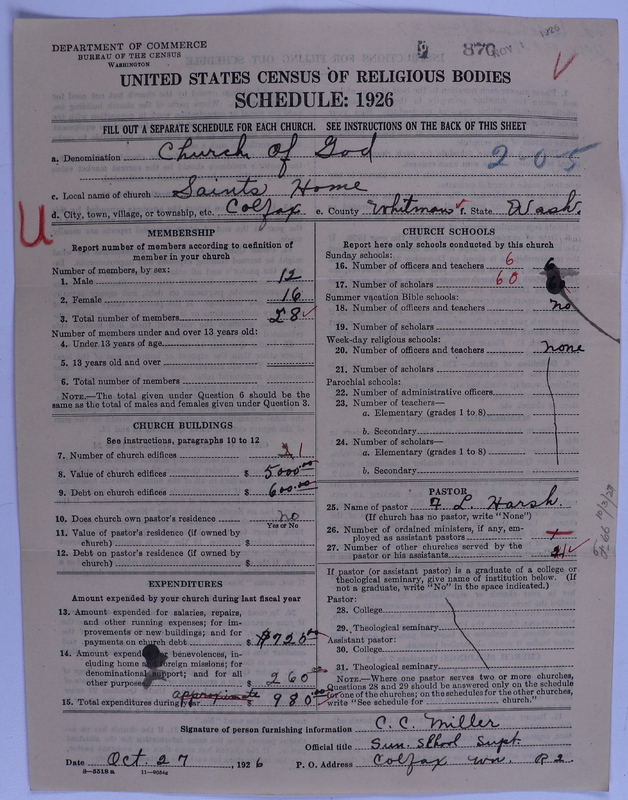 DEPARTMENT OF COMMERCE
BUREAU OF THE CENSUS
WASHINGTON
870 NOV 1 1926
UNITED STATES CENSUS OF RELIGIOUS BODIES
SCHEDULE: 1926
FILL OUT A SEPARATE SCHEDULE FOR EACH CHURCH. SEE INSTRUCTIONS ON THE BACK OF THIS SHEET
a. Denomination Church of God
2-0-5
c. Local name of church Saints Home
d. City, town, village, or township, etc. Colfax e. County Whitman f. State Wash.
U
MEMBERSHIP
Report number of members according to definition of
member in your church
Number of members, by sex:
1. Male 12
2. Female 16
3. Total number of members 28
Number of members under and over 13 years old:
4. Under 13 years of age
5. 13 years old and over
6. Total number of members
NOTE.—The total given under Question 6 should be the
same as the total of males and females given under Question 3.
CHURCH BUILDINGS
See instructions, paragraphs 10 to 12
7. Number of church edifices 1
8. Value of church edifices $ 5000.00
9. Debt on church edifices $ 600.00
10. Does church own pastor's residence no
Yes or No
11. Value of pastor's residence (if owned by
church) $
12. Debt on pastor's residence (if owned by
church) $
EXPENDITURES
Amount expended by your church during last fiscal year
13. Amount expended for salaries, repairs,
and other running expenses; for im-
provements or new buildings; and for
payments on church debt $ 720.00
14. Amount expended for benevolences, in-
cluding home and foreign missions; for
denominational support; and for all
other purposes $ 260.00
approximate
15. Total expenditures during year $ 980.00
CHURCH SCHOOLS
Report here only schools conducted by this church
Sunday schools:
16. Number of officers and teachers 6 6
17. Number of scholars 60
Summer vacation Bible schools:
18. Number of officers and teachers no
19. Number of scholars
Week-day religious schools:
20. Number of officers and teachers none
21. Number of scholars
Parochial schools:
22. Number of administrative officers
23. Number of teachers—
a. Elementary (grades 1 to 8)
b. Secondary
24. Number of scholars—
a. Elementary (grades 1 to 8)
b. Secondary
PASTOR
25. Name of pastor F. L. Harsh
(If church has no pastor, write "None")
26. Number of ordained ministers, if any, em-
ployed as assistant pastors
27. Number of other churches served by the
pastor or his assistants
If pastor (or assistant pastor) is a graduate of a college or
theological seminary, give name of institution below. (If
not a graduate, write "No" in the space indicated.)
Pastor:
28. College
29. Theological seminary
Assistant pastor:
30. College
31. Theological seminary
NOTE.—Where one pastor serves two or more churches,
Questions 28 and 29 should be answered only on the schedule
for one of the churches; on the schedules for the other churches,
write "See schedule for church."
Signature of person furnishing information C. C. Miller
Official title Sun. School Supt.
Date Oct. 27, 1926 P. O. Address Colfax Wn. R 2
8—5518 a 11—9084a